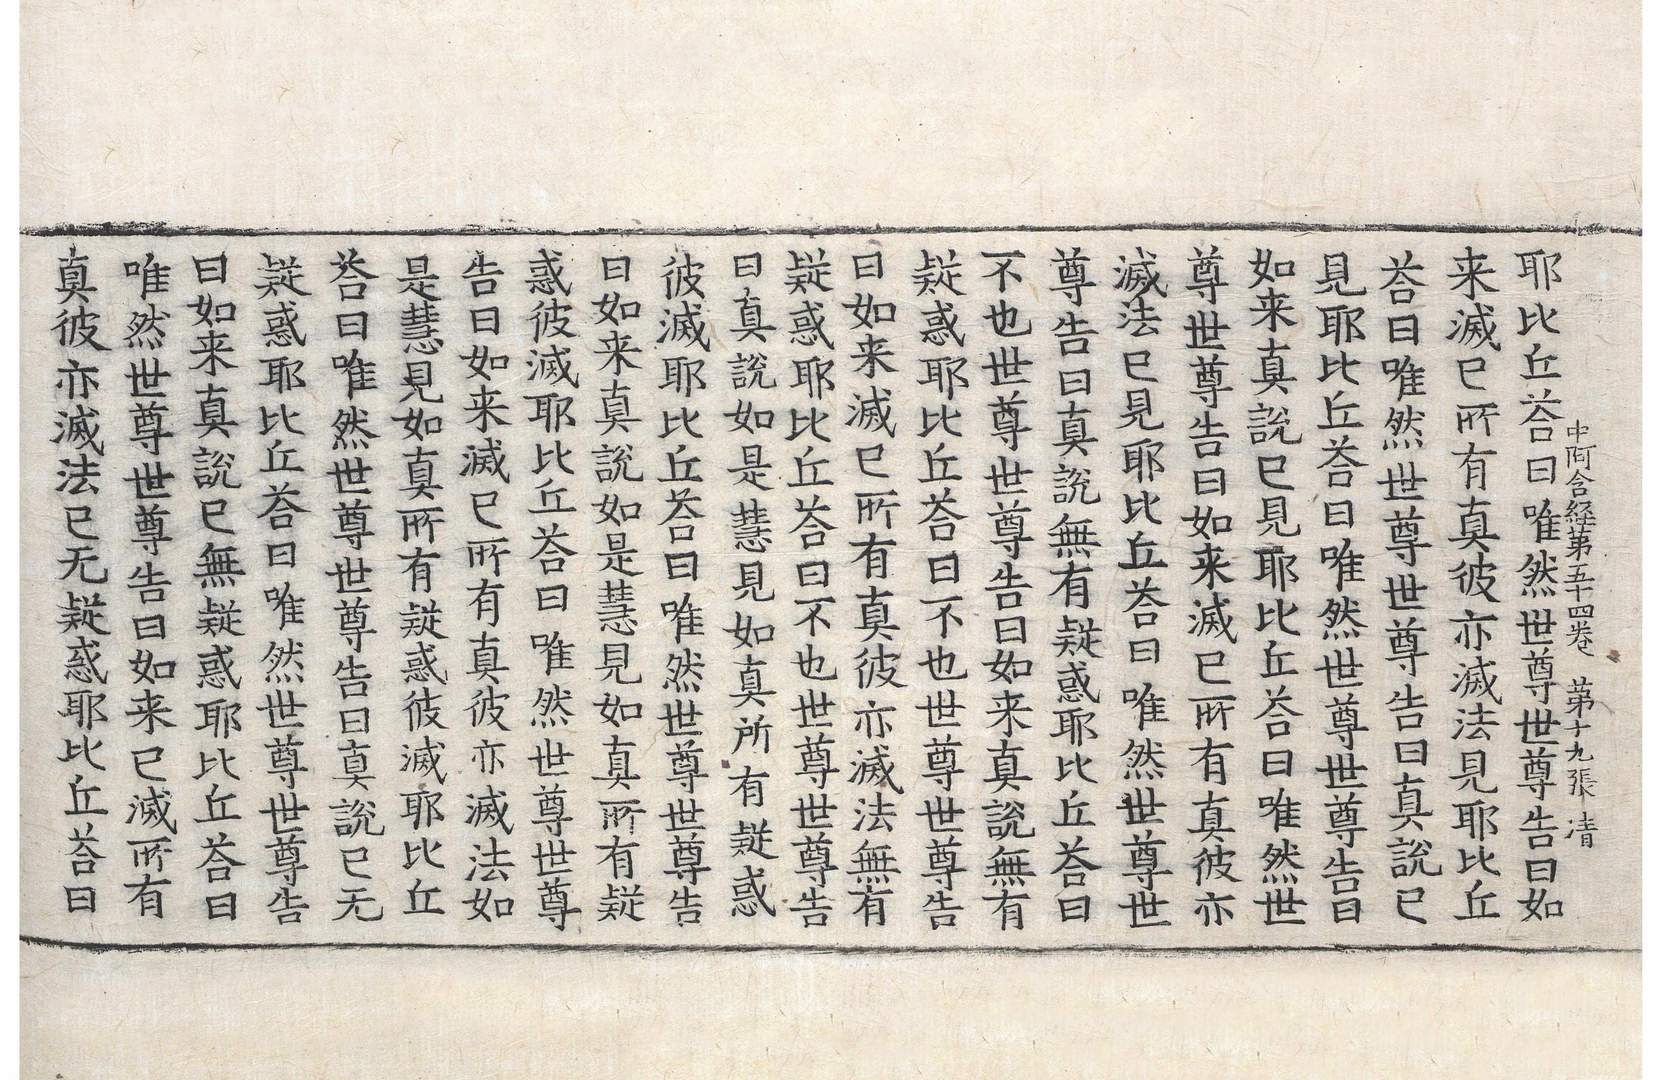 中阿含経第五十四卷 第十九張 清
耶比丘荅曰唯然世尊世尊告曰如
来滅已所有真彼亦滅法見耶比丘
荅曰唯然世尊世尊告曰真說已
見耶比丘荅曰唯然世尊世尊告曰
如来真說已見耶比丘荅曰唯然世
尊世尊告曰如来滅已所有真彼亦
滅法已見耶比丘荅曰唯然世尊世
尊告曰真說無有疑惑耶比丘荅曰
不也世尊世尊告曰如来真說無有
疑惑耶比丘荅曰不也世尊世尊告
曰如来滅已所有真彼亦滅法無有
疑惑耶比丘荅曰不也世尊世尊告
曰真說如是慧見如真所有疑惑
彼滅耶比丘荅曰唯然世尊世尊告
曰如来真說如是慧見如真所有疑
惑彼滅耶比丘荅曰唯然世尊世尊
告曰如来滅已所有真彼亦滅法如
是慧見如真所有疑惑彼滅耶比丘
荅曰唯然世尊世尊告曰真說已无
疑惑耶比丘荅曰唯然世尊世尊告
曰如来真說已無疑惑耶比丘荅曰
唯然世尊世尊告曰如来已滅所有
真彼亦滅法已无疑惑耶比丘荅曰